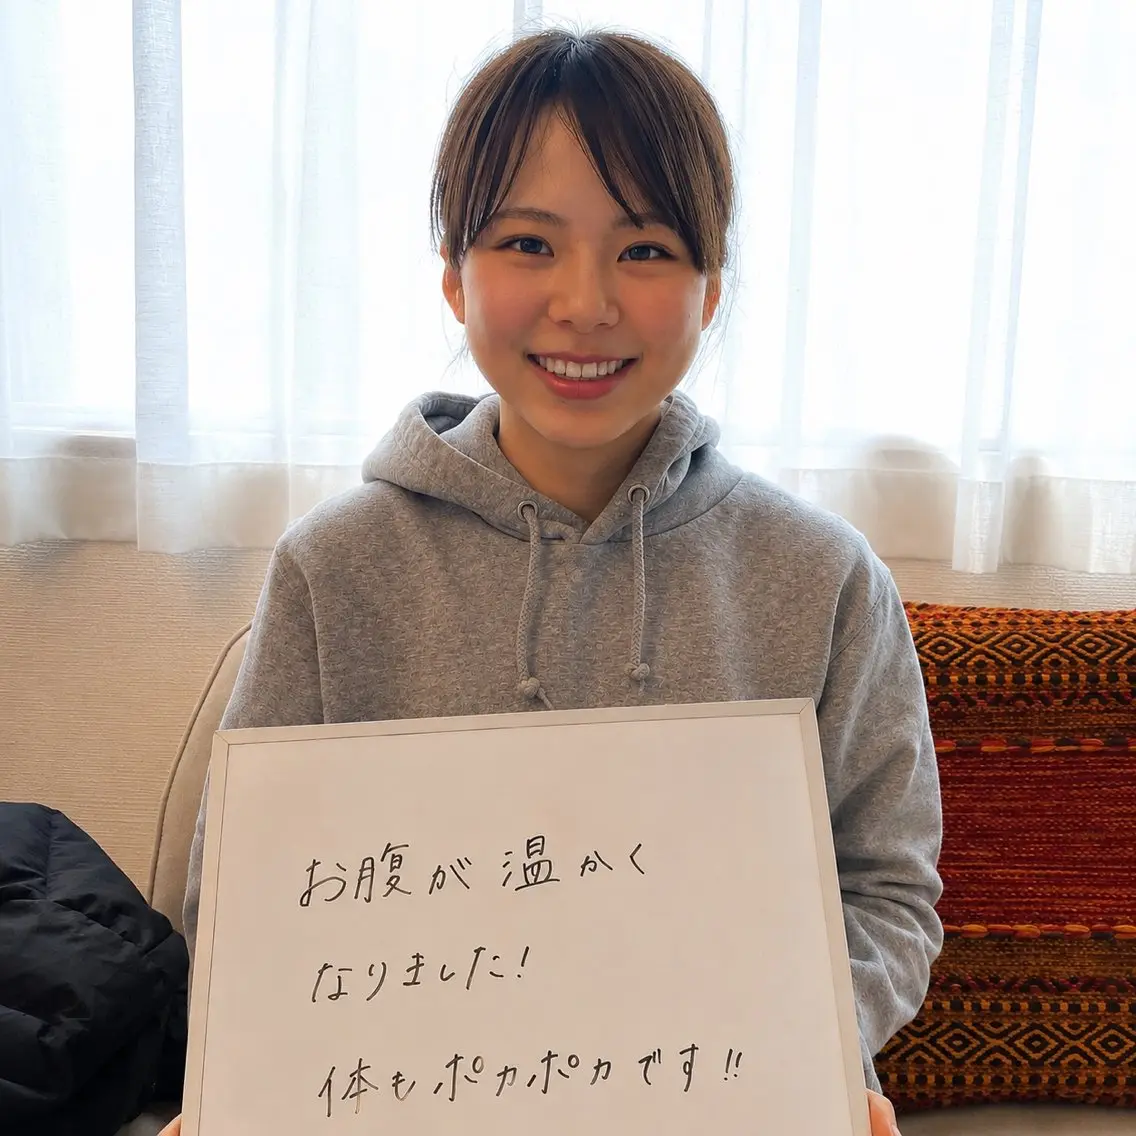 お腹が温かく
なりました!
体もポカポカです!!